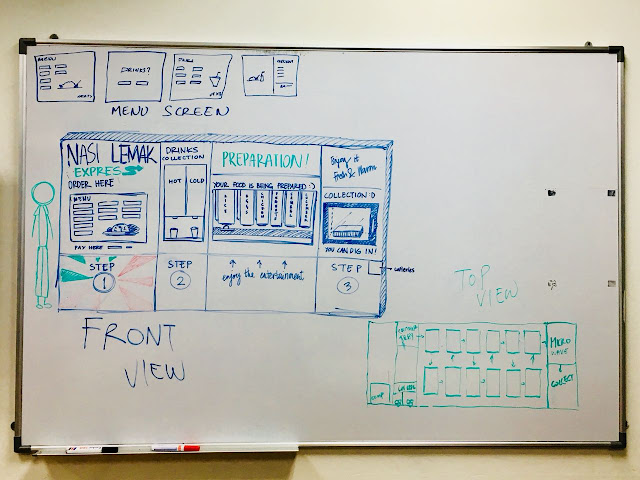 MENU
DRINKS?
MENU SCREEN
NASI LEMAK
EXPRESS
ORDER HERE
MENU
PAY HERE
STEP
1
DRINKS
COLLECTION
HOT COLD
STEP
2
PREPARATION!
YOUR FOOD IS BEING PREPARED :)
RICE
enjoy the entertainment
Enjoy it
Fresh & Warm
COLLECTION :D
YOU CAN DIG IN!
STEP
3
cutleries
FRONT
VIEW
TOP
VIEW
MICRO
WAVE
COLLECT